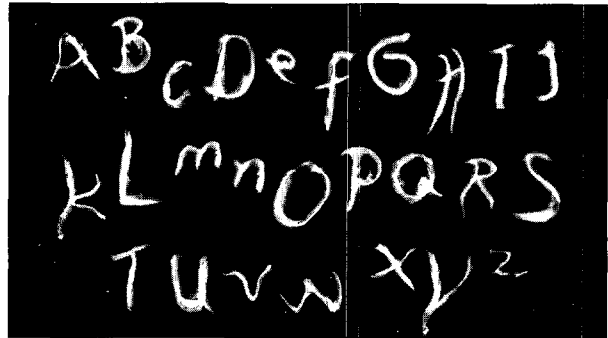 A B c D e f G H I J
K L m n O P Q R S
T U v w X y z